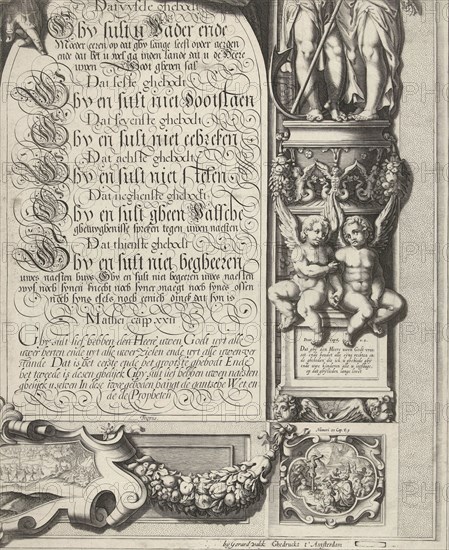 Dat vyfde ghebodt
Ghy sult u Vader ende
Moeder eeren op dat ghy lange leeft op der aerden
ende dat het u wel ga inden lande dat u de Heere
uwen Godt gheven sal
Dat seste ghebodt
Ghy en sult niet dootslaen
Dat sevenste ghebodt
Ghy en sult niet eebreken
Dat achste ghebodt
Ghy en sult niet stelen
Dat neghenste ghebodt
Ghy en sult gheen valsche
ghetuyghenisse spreken tegen uwen naesten
Dat thienste ghebodt
Ghy en sult niet begheeren
uwes naesten huys Ghy en sult niet begeren uwes naesten
wyf noch synen knecht noch syner maegt noch synes ossen
noch syns esels noch eenich dinck dat syn is
Mathei cap. xxii
Ghy sult lief hebben den Heer uwen Godt uyt alle
uwer herten ende uyt alle uwer zielen ende uyt alle uwen ver
stande Dat is het eerste ende het grootste ghebodt Ende
het tweede is desen ghelijck Ghy sult lief hebben uwen naesten
ghelijck u selven In dese twee geboden hangt de gantsche Wet en
de de Propheten
Numeri 21 Cap. 8.9
by Gerard Valk Ghedruckt t'Amsterdam